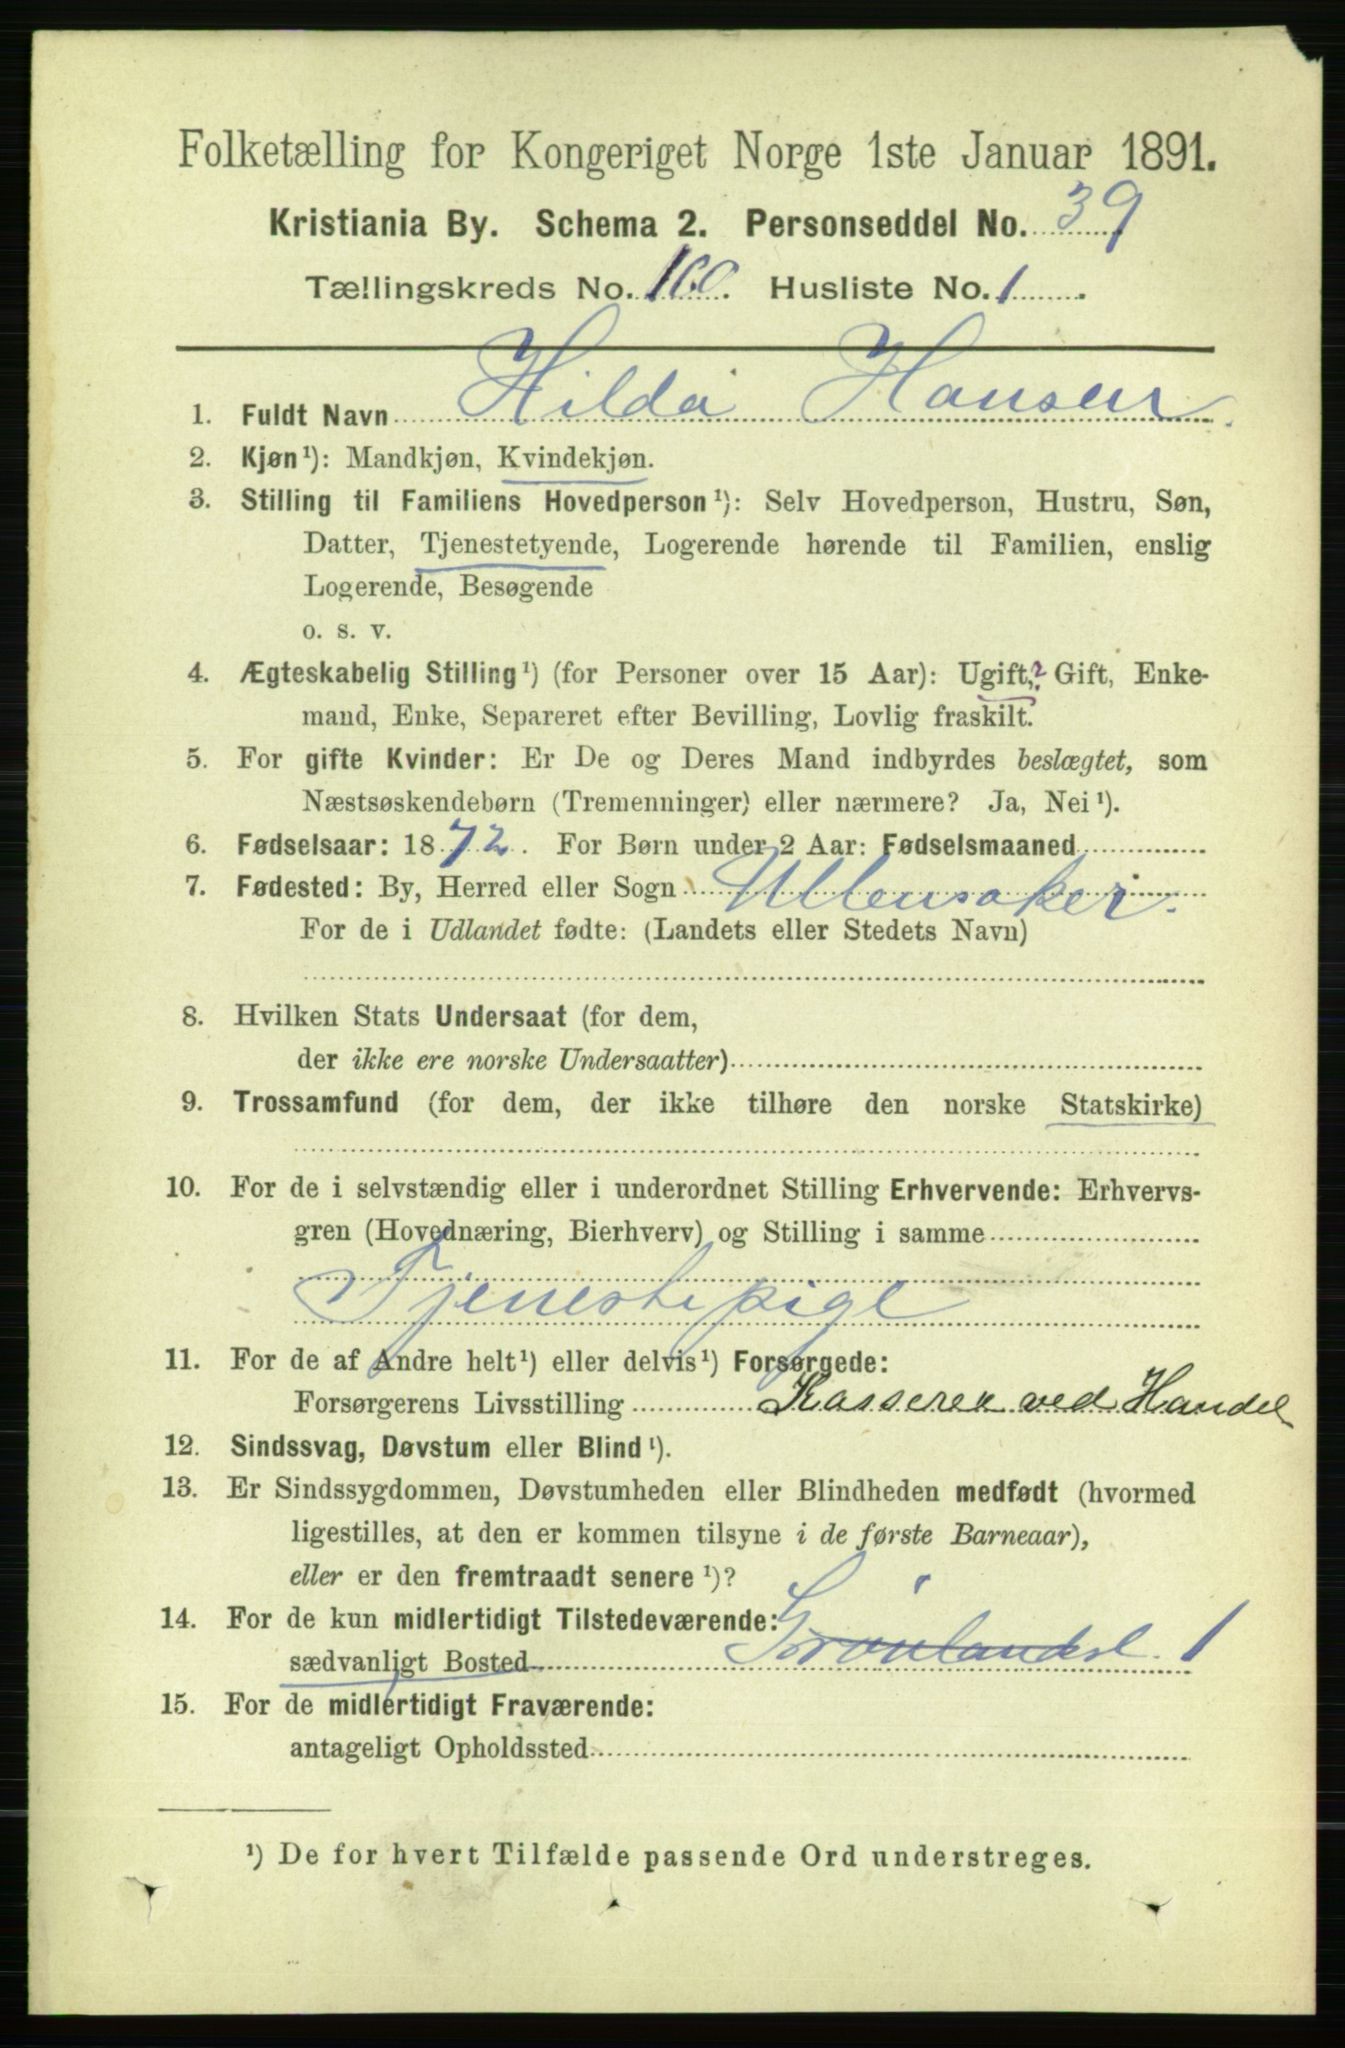 Folketælling for Kongeriget Norge 1ste Januar 1891.
Kristiania By. Schema 2. Personseddel No. 39
Tællingskreds No. 160. Husliste No. 1.
1. Fuldt Navn Hilda Hansen.
2. Kjøn¹): Mandkjøn, Kvindekjøn.
3. Stilling til Familiens Hovedperson¹): Selv Hovedperson, Hustru, Søn,
Datter, Tjenestetyende, Logerende hørende til Familien, enslig
Logerende, Besøgende
o. s. v.
4. Ægteskabelig Stilling¹) (for Personer over 15 Aar): Ugift,? Gift, Enke-
mand, Enke, Separeret efter Bevilling, Lovlig fraskilt.
5. For gifte Kvinder: Er De og Deres Mand indbyrdes beslægtet, som
Næstsøskendebørn (Tremenninger) eller nærmere? Ja, Nei¹).
6. Fødselsaar: 1872. For Børn under 2 Aar: Fødselsmaaned
7. Fødested: By, Herred eller Sogn Ullensaker.
For de i Udlandet fødte: (Landets eller Stedets Navn)
8. Hvilken Stats Undersaat (for dem,
der ikke ere norske Undersaatter)
9. Trossamfund (for dem, der ikke tilhøre den norske Statskirke)
10. For de i selvstændig eller i underordnet Stilling Erhvervende: Erhvervs-
gren (Hovednæring, Bierhverv) og Stilling i samme
Tjenestepige
11. For de af Andre helt¹) eller delvis¹) Forsørgede:
Forsørgerens Livsstilling Kasserer ved Handel
12. Sindssvag, Døvstum eller Blind¹).
13. Er Sindssygdommen, Døvstumheden eller Blindheden medfødt (hvormed
ligestilles, at den er kommen tilsyne i de første Barneaar),
eller er den fremtraadt senere¹)?
14. For de kun midlertidigt Tilstedeværende:
sædvanligt Bosted Grønlandsl. 1
15. For de midlertidigt Fraværende:
antageligt Opholdssted
¹) De for hvert Tilfælde passende Ord understreges.